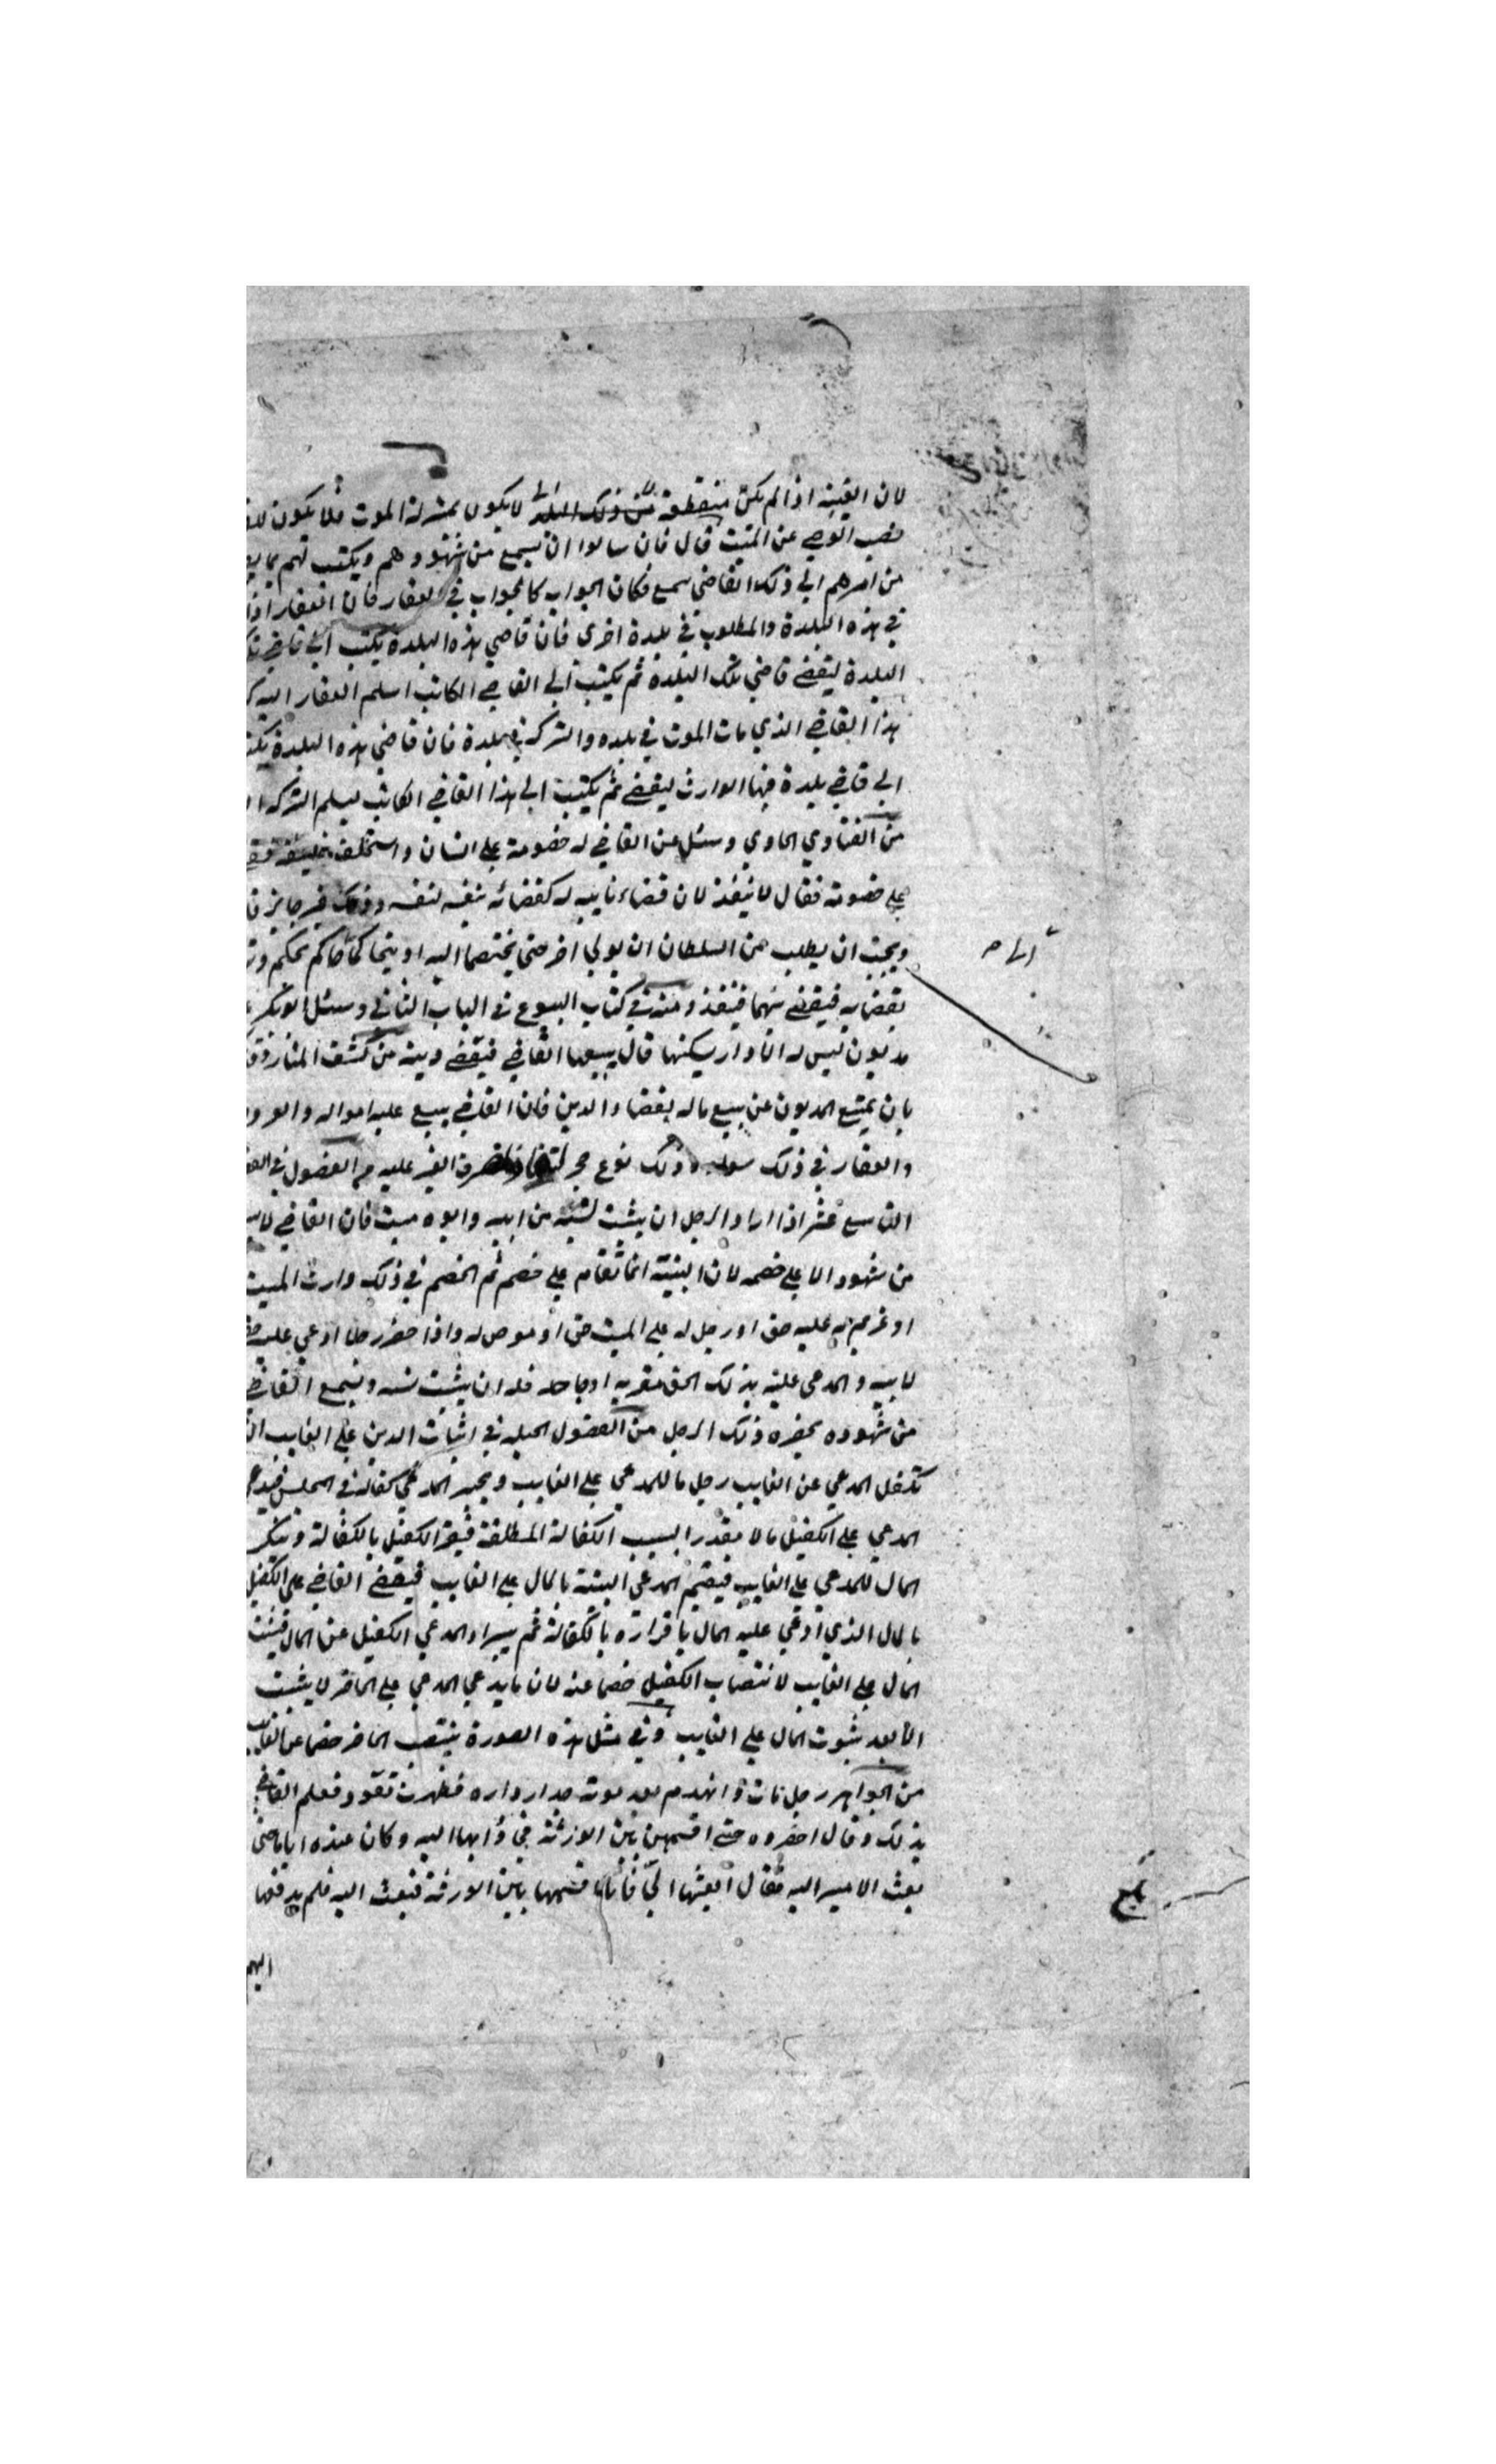 لان الغيبة اذا لم يكن منقطعة من ذلك البلد لا يكون بمنزلة الموت فلا يكون
نصب الوصي عن الميت قال فان سالوا ان يسمع من شهودهم ويكتب لهم بما
من امرهم الي ذلك القاضي سمع فكان الجواب كالجواب في العقار فان العقار اذا
في هذه البلدة والمطلوب في بلدة اخرى فان قاضي هذه البلدة يكتب الي قاضي
البلدة ليقضي قاضي تلك البلدة ثم يكتب الي القاضي الكاتب اسلم العقار اليه
هذا القاضي الذي مات الموت في بلده والتركة في بلدة فان قاضي هذه البلدة
الي قاضي بلدة فيها الوارث ليقضي ثم يكتب الي هذا القاضي الكاتب ليسلم التركة
من الفتاوي الحاوي وسئل عن القاضي له خصومة علي انسان واستخلف خليفة
علي خصومته فقال لا ينفذ لان قضاء نايبه له كقضائه بنفسه لنفسه وذلك غير جائز
ويجب ان يطلب من السلطان ان يولي اخر حتى يختصما اليه او يتحاكما لحاكم محكم
بقضايه فيقضي بينهما فينفذ ومنه في كتاب البيوع في الباب الثاني وسئل ابو بكر
مديون ليس له الا دار يسكنها قال يبيعها القاضي فيقضي دينه من كشف المنار
بان يمتنع المديون عن بيع ماله بقضاء الدين فان القاضي يبيع عليه امواله والعروض
والعقار في ذلك سواء وذلك نوع حجر الغير عليه من الفصول في
التاسع عشر اذا اراد الرجل ان يثبت نسبه من ابيه وابوه ميت فان القاضي لا
من شهود الا علي خصم لان البينة انما تقام علي خصم ثم الخصم في ذلك وارث الميت
او غريم له عليه حق او رجل له علي الميت حق او موصى له واذا حضر رجلا ادعي عليه
لابيه والمدعى عليه بذلك الحق مقر به او جاحد فله ان يثبت نسبه ويسمع القاضي
من شهوده بحضرة ذلك الرجل من الفصول الحيلة في اثبات الدين علي الغايب
تكفل المدعي عن الغايب رجل ما للمدعي علي الغايب ويجيز المدعي كفالته في المجلس فيدعي
المدعي علي الكفيل مالا مقدرا بسبب الكفالة المطلقة فيقر الكفيل بالكفالة وينكر
المال للمدعي علي الغايب فيقيم المدعي البينة بالمال علي الغايب فيقضي القاضي علي الكفيل
بالمال الذي ادعي عليه المال باقراره بالكفالة ثم يبراء المدعي الكفيل عن المال فيثبت
المال علي الغايب لانتصاب الكفيل خصما عنه لان ما يدعي المدعي علي الحاضر لا يثبت
الا بعد ثبوت المال علي الغايب وفي مثل هذه الصورة ينتصب الحاضر خصما عن الغايب
من الجواهر رجل مات وانهدم بعد موته جدار داره فظهرت نقود فعلم القاضي
بذلك وقال احضروه حتى اقسمهن بين الورثة فجاؤا بها اليه وكان عنده اياما حتى
بعث الامير اليه فقال ابعثها الي فانا اقسمها بين الورثة فبعث اليه فلم يدفعها